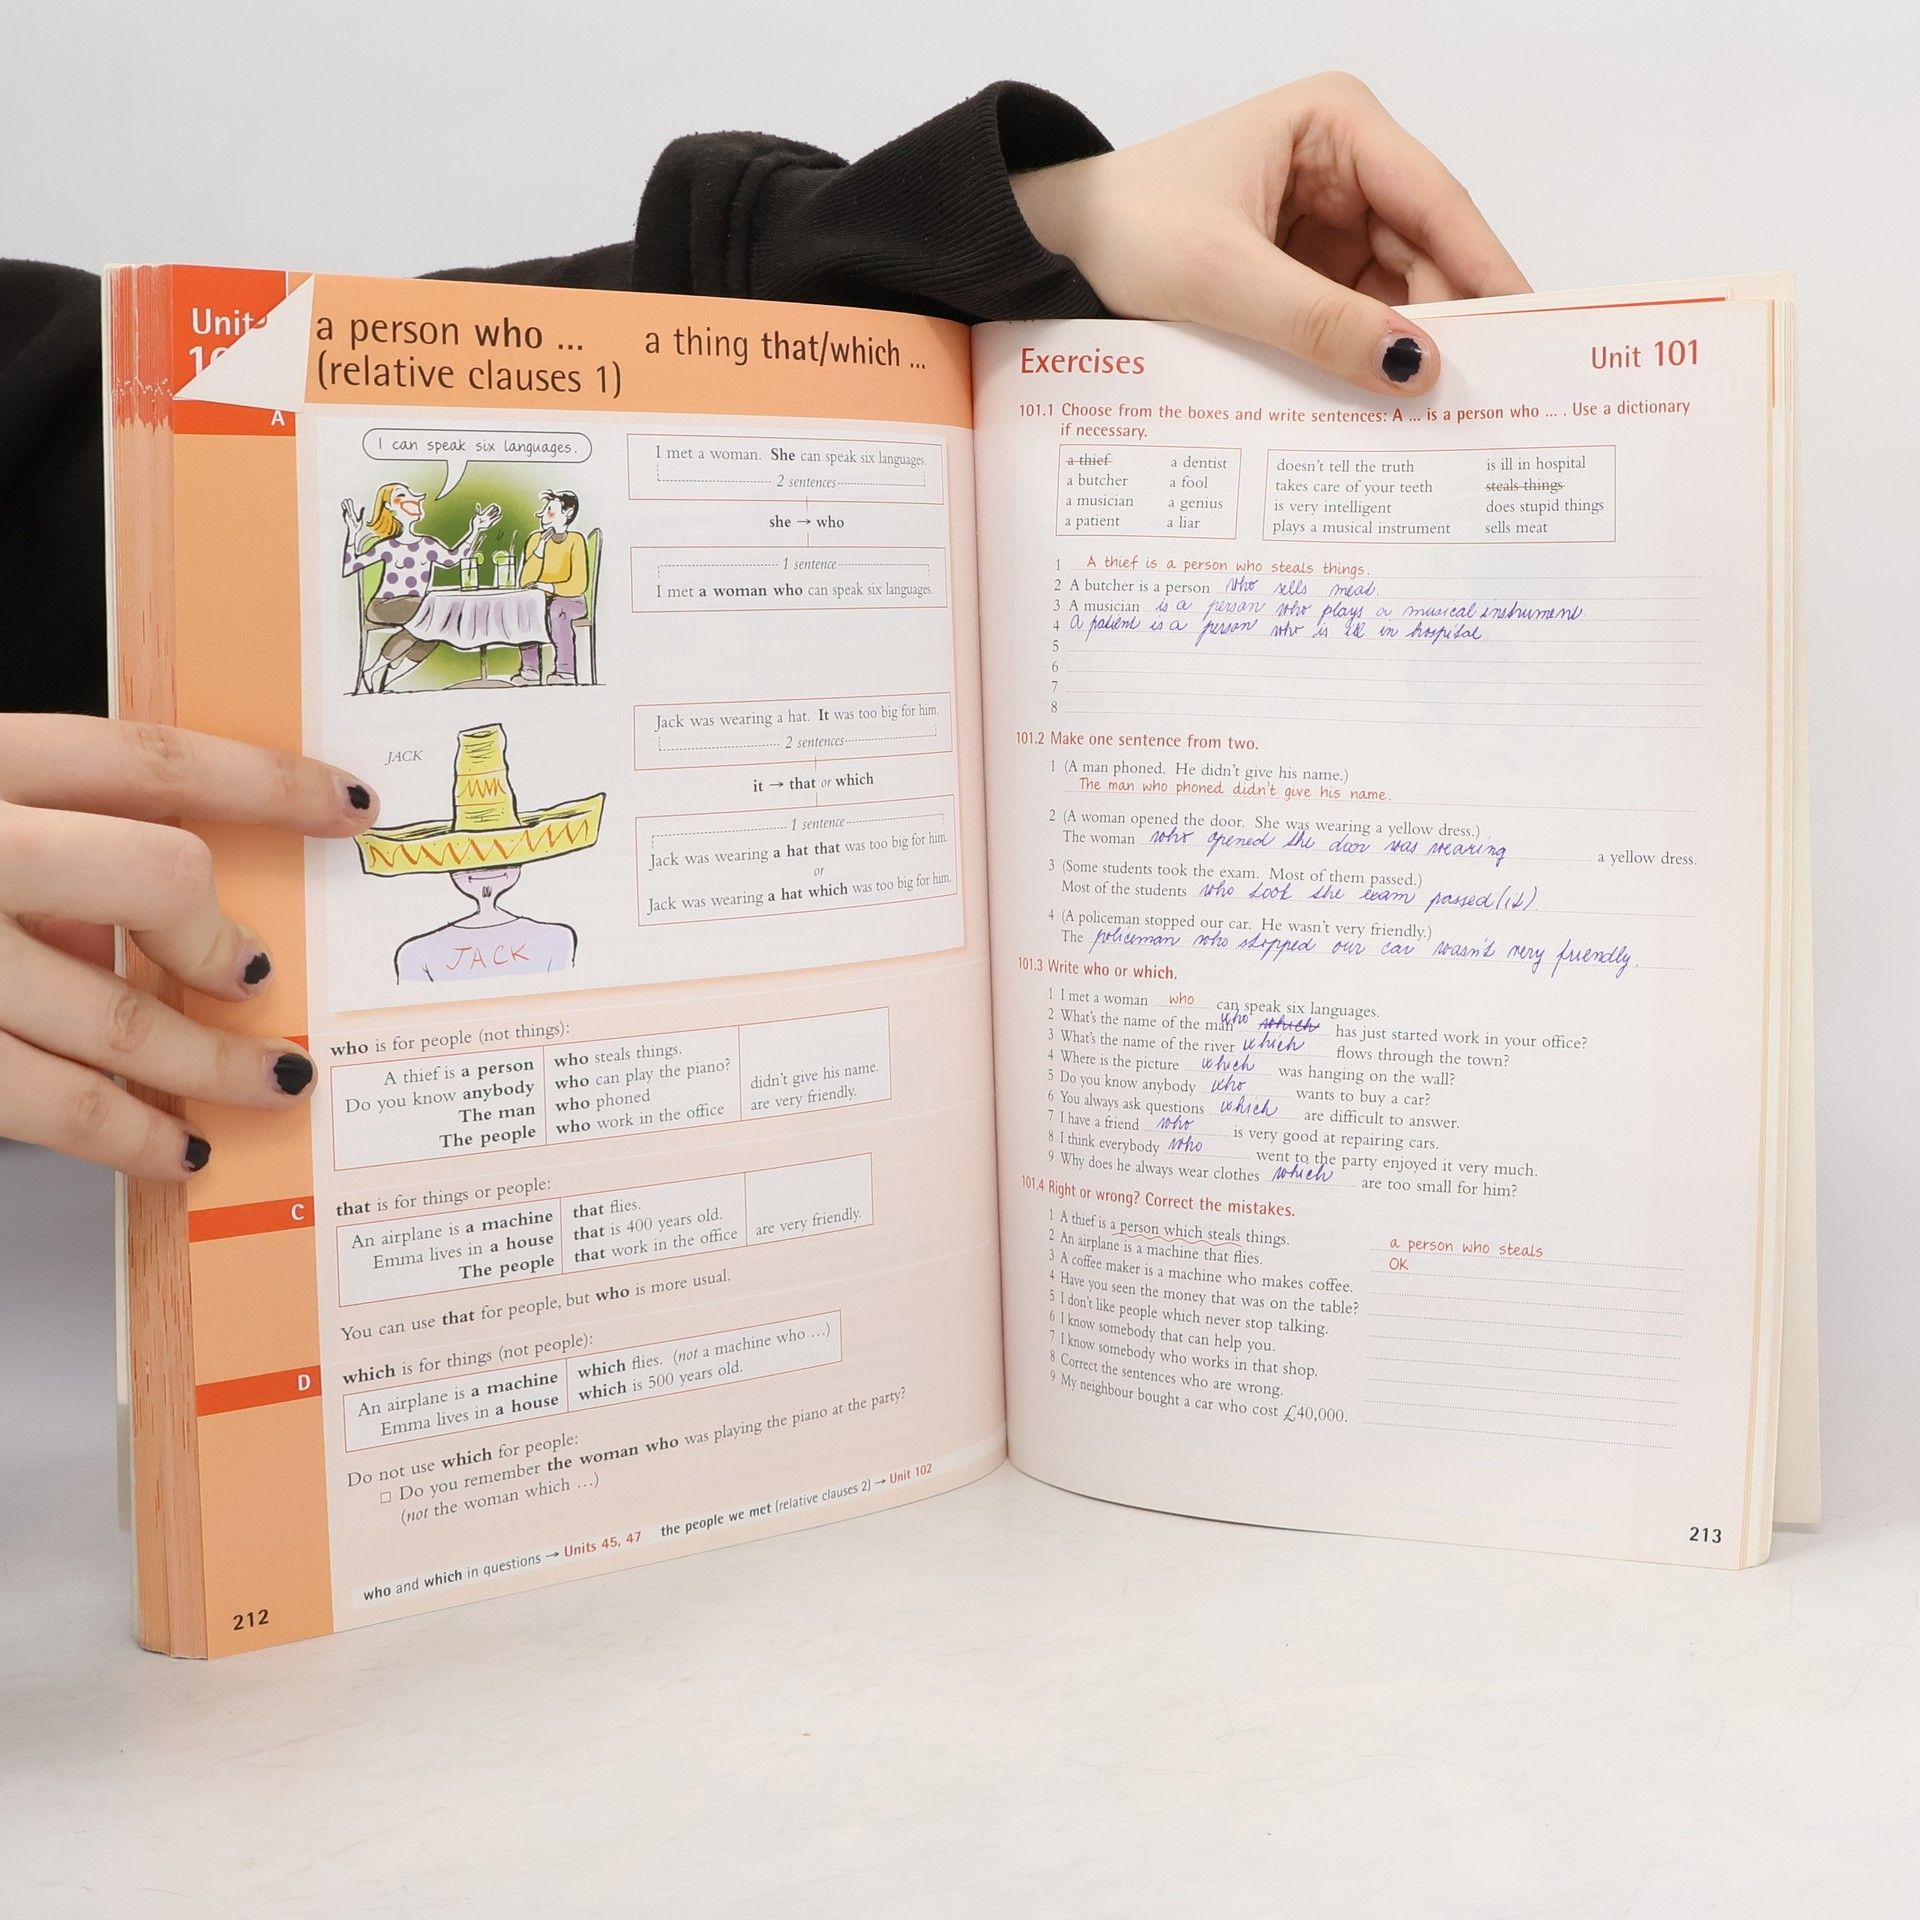 Unit
A
a person who ... a thing that/which ...
(relative clauses 1)
I can speak six languages.
I met a woman. She can speak six languages.
2 sentences
she → who
1 sentence
I met a woman who can speak six languages.
JACK
JACK
Jack was wearing a hat. It was too big for him.
2 sentences
it → that or which
1 sentence
Jack was wearing a hat that was too big for him.
or
Jack was wearing a hat which was too big for him.
who is for people (not things):
A thief is a person who steals things.
Do you know anybody who can play the piano?
The man who phoned didn't give his name.
The people who work in the office are very friendly.
C
that is for things or people:
An airplane is a machine that flies.
Emma lives in a house that is 400 years old.
The people that work in the office are very friendly.
You can use that for people, but who is more usual.
D
which is for things (not people):
An airplane is a machine which flies. (not a machine who ...)
Emma lives in a house which is 500 years old.
Do not use which for people:
□ Do you remember the woman who was playing the piano at the party?
(not the woman which ...)
who and which in questions → Units 45, 47 the people we met (relative clauses 2) → Unit 102
212
Exercises Unit 101
101.1 Choose from the boxes and write sentences: A ... is a person who ... . Use a dictionary
if necessary.
a thief a dentist
a butcher a fool
a musician a genius
a patient a liar
doesn't tell the truth is ill in hospital
takes care of your teeth steals things
is very intelligent does stupid things
plays a musical instrument sells meat
1 A thief is a person who steals things.
2 A butcher is a person who sells meat.
3 A musician is a person who plays a musical instrument.
4 A patient is a person who is ill in hospital
5
6
7
8
101.2 Make one sentence from two.
1 (A man phoned. He didn't give his name.)
The man who phoned didn't give his name.
2 (A woman opened the door. She was wearing a yellow dress.)
The woman who opened the door was wearing a yellow dress.
3 (Some students took the exam. Most of them passed.)
Most of the students who took the exam passed (it).
4 (A policeman stopped our car. He wasn't very friendly.)
The policeman who stopped our car wasn't very friendly.
101.3 Write who or which.
1 I met a woman who can speak six languages.
2 What's the name of the man who which has just started work in your office?
3 What's the name of the river which flows through the town?
4 Where is the picture which was hanging on the wall?
5 Do you know anybody who wants to buy a car?
6 You always ask questions which are difficult to answer.
7 I have a friend who is very good at repairing cars.
8 I think everybody who went to the party enjoyed it very much.
9 Why does he always wear clothes which are too small for him?
101.4 Right or wrong? Correct the mistakes.
1 A thief is a person which steals things. a person who steals
2 An airplane is a machine that flies. OK
3 A coffee maker is a machine who makes coffee.
4 Have you seen the money that was on the table?
5 I don't like people which never stop talking.
6 I know somebody that can help you.
7 I know somebody who works in that shop.
8 Correct the sentences who are wrong.
9 My neighbour bought a car who cost £40,000.
213